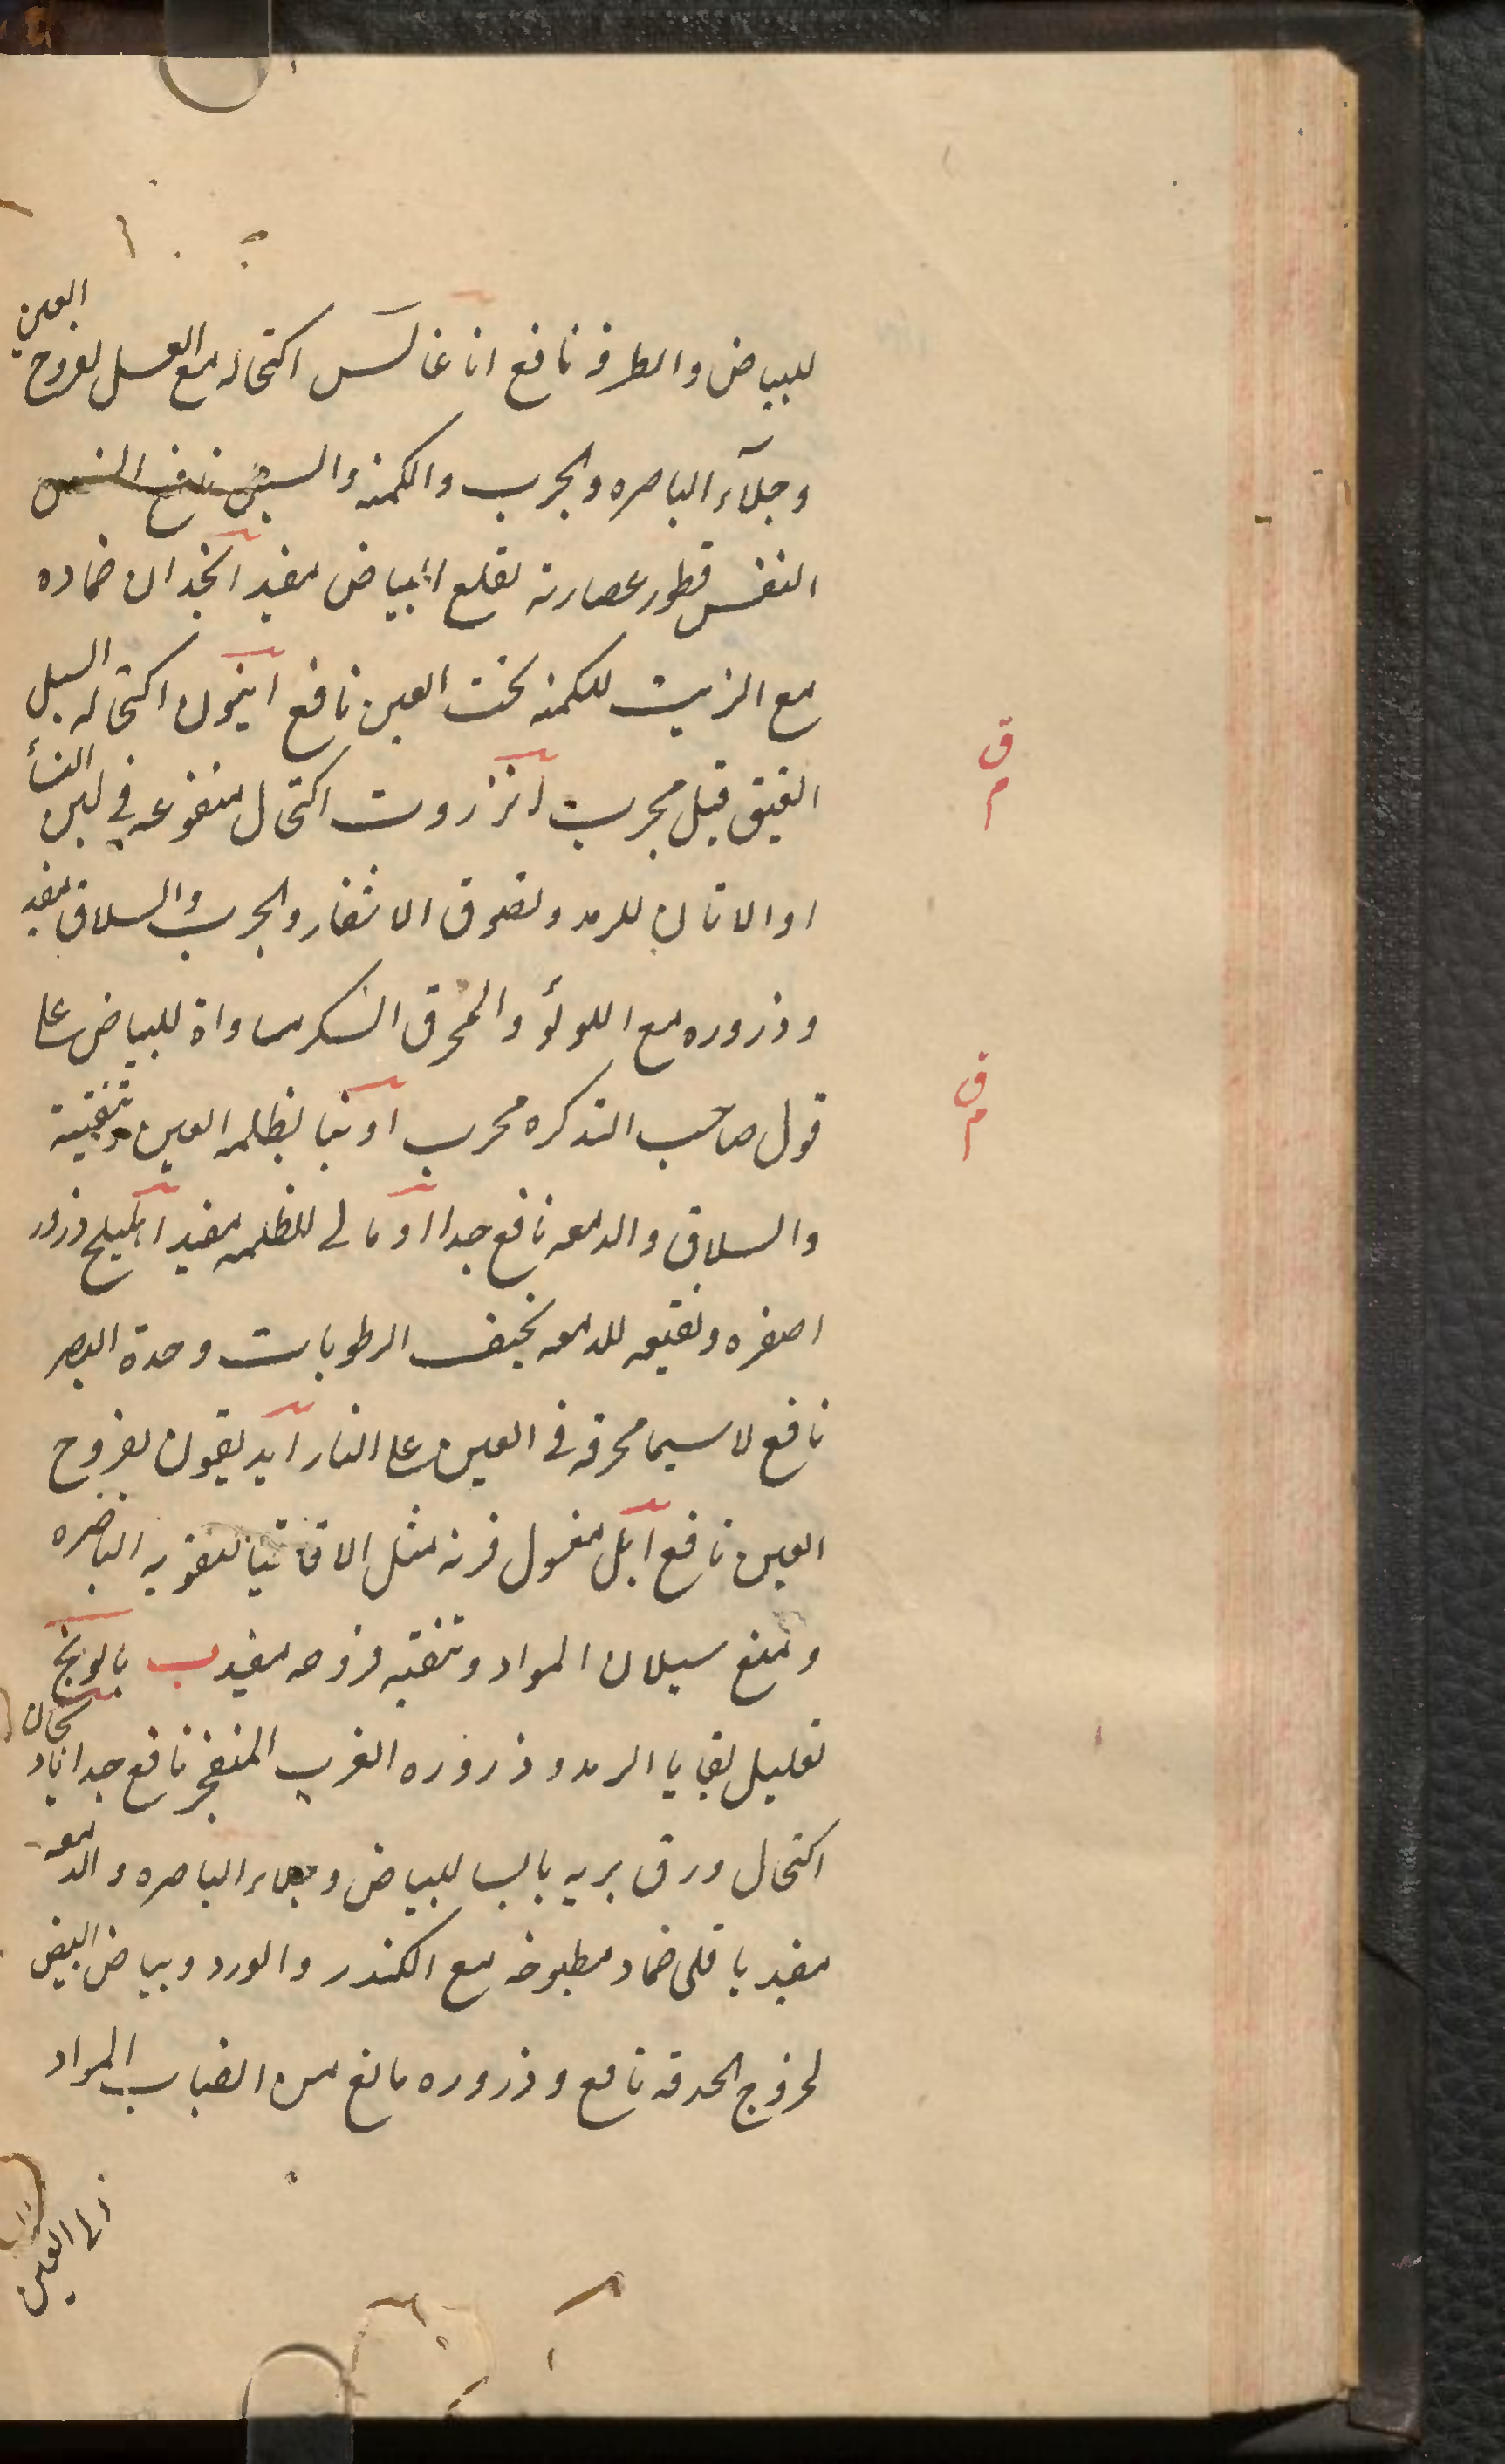 للبياض والطرفه نافع اناغالس اكتحاله مع العسل لقروح العين
وجلآء الباصره والجرب والكمنه والسبل
النفس قطور عصارته لقلع البياض مفيد انجدان ضماده
مع الزيت للكمنه تحت العين نافع افيون اكتحاله السبل
العتيق قيل مجرب انزروت اكتحال منقوعه في لبن النسأ
او الاتان للرمد ولصوق الاشفار والجرب والسلاق مفيد
وذروره مع اللولؤ والمحرق السكر مساواة للبياض على
قول صاحب التذكره مجرب اونيا لظلمه العين وتنقيته
والسلاق والدمعه نافع جدا اومالي للظلمه مفيد اهليلج ذرور
اصفره ونقيعه للدمعه تجفف الرطوبات وحدة البصر
نافع لاسيما محرقه في العجين على النار ايديقون لقروح
العين نافع ايل مغسول قرنه مثل الاقاقيا لتقويه الباصره
ومنع سيلان المواد وتنقيه قروحه مفيد ب بابونج
تحليل بقايا الرمد وذروره الغرب المنفجر نافع جدا بادنجان
اكتحال ورق بريه يابسا للبياض وجلاء الباصره والدمعه
مفيد باقلى ضماد مطبوخه مع الكندر والورد وبياض البيض
لخروج الحدقه نافع وذروره مانع من انصباب المواد
الى العين
ق
م
ق
م